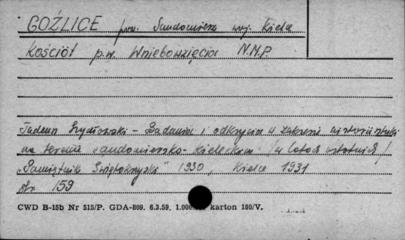 GOŹLICE pow. Sandomierz woj. Kielce
Kościół p.w. Wniebowzięcia N.M.P.
Tadeusz Szydłowski - Badania i odkrycia w zakresie historii sztuki
na terenie sandomiersko-kieleckim (w latach ostatnich)
"Pamiętnik Świętokrzyski" 1930, Kielce 1931
str 159
CWD B-15b Nr 515/P. GDA-809. 6.3.59. 1.000 karton 180/V.